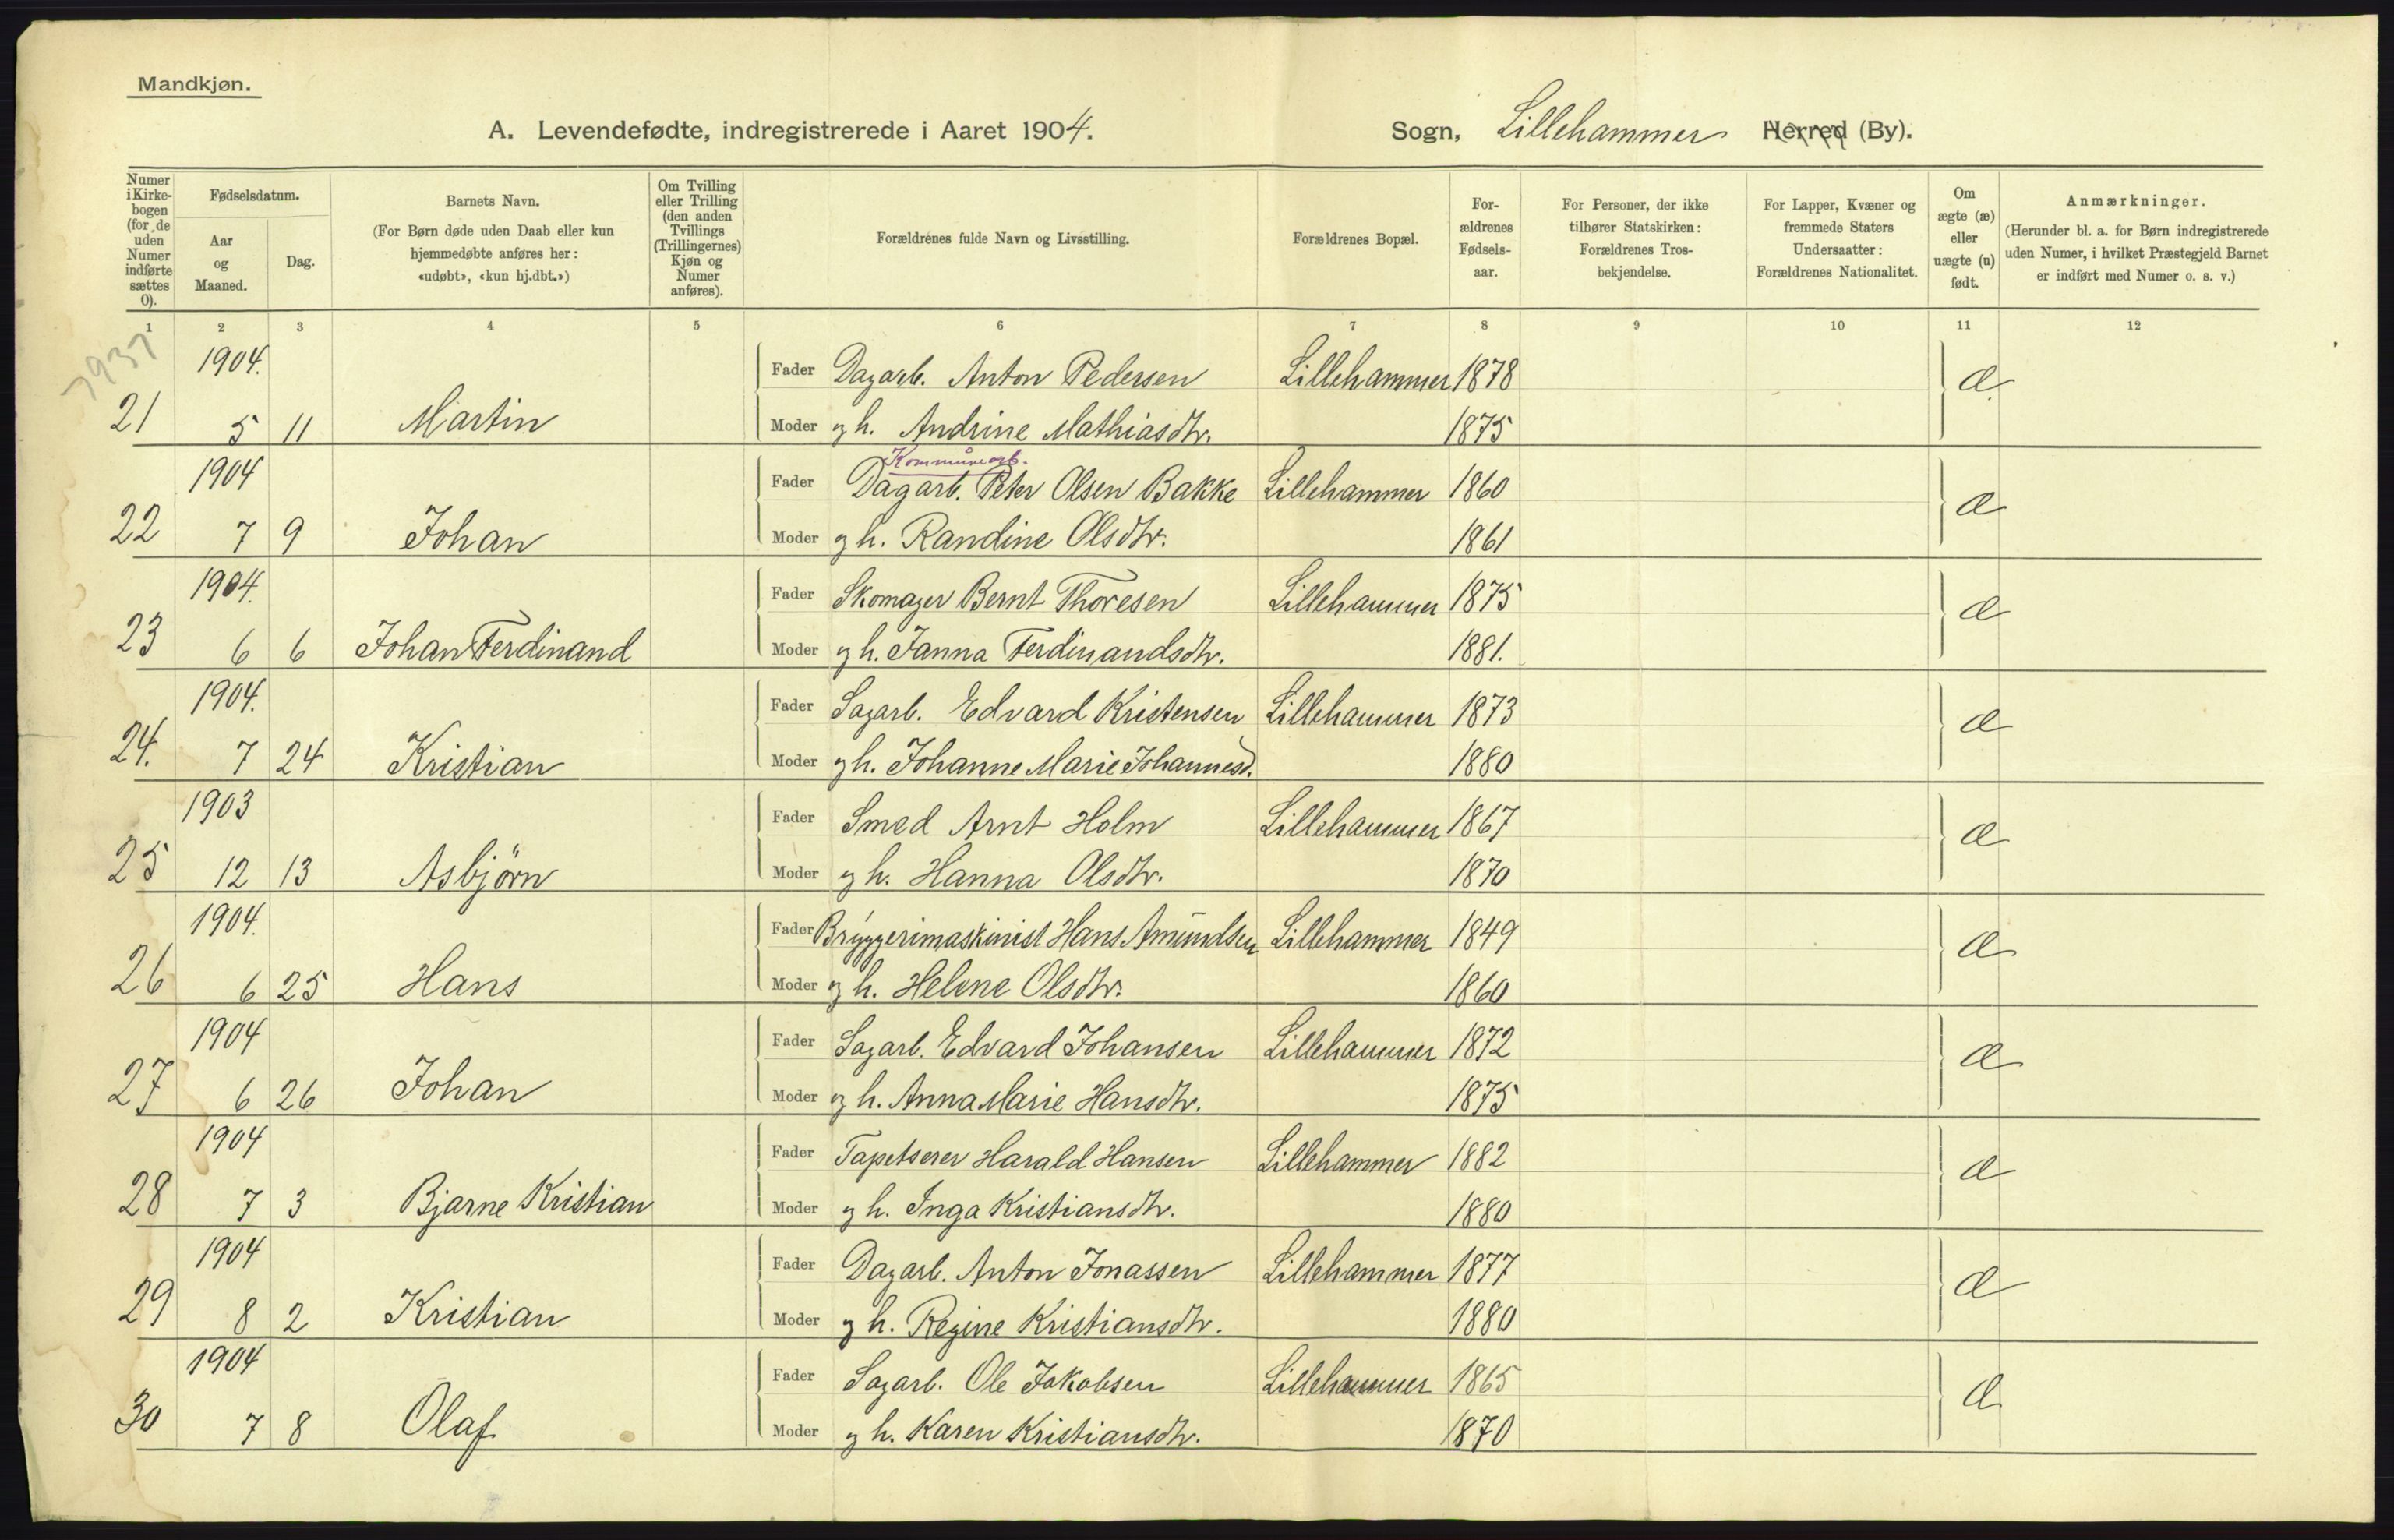 Mandkjøn.
A. Levendefødte, indregistrerede i Aaret 1904. Sogn, Lillehammer Herred (By).
Numer i Kirkebogen (for de uden Numer indførte sættes 0).
Fødselsdatum.
Aar og Maaned.
Dag.
Barnets Navn.
(For Børn døde uden Daab eller kun hjemmedøbte anføres her: «udøbt», «kun hj.dbt.»)
Om Tvilling eller Trilling (den anden Tvillings (Trillingernes) Kjøn og Numer anføres).
Forældrenes fulde Navn og Livsstilling.
Forældrenes Bopæl.
Forældrenes Fødselsaar.
For Personer, der ikke tilhører Statskirken: Forældrenes Trosbekjendelse.
For Lapper, Kvæner og fremmede Staters Undersaatter: Forældrenes Nationalitet.
Om ægte (æ) eller uægte (u) født.
Anmærkninger.
(Herunder bl. a. for Børn indregistrerede uden Numer, i hvilket Præstegjeld Barnet er indført med Numer o. s. v.)
1 2 3 4 5 6 7 8 9 10 11 12
7937
1904. Fader Dagarb. Anton Pedersen Lillehammer 1878 æ
21 5 11 Martin Moder og h. Andrine Mathiasdtr. 1875
Kommunearb.
1904 Fader Dagarb. Peter Olsen Bakke Lillehammer 1860 æ
22 7 9 Johan Moder og h. Randine Olsdtr. 1861
1904. Fader Skomager Bernt Thoresen Lillehammer 1875 æ
23 6 6 Johan Ferdinand Moder og h. Janna Ferdinandsdtr. 1881.
1904. Fader Sagarb. Edvard Kristensen Lillehammer 1873 æ
24. 7 24 Kristian Moder og h. Johanne Marie Johannesd. 1880
1903 Fader Smed Arnt Holm Lillehammer 1867 æ
25 12 13 Asbjörn Moder og h. Hanna Olsdtr. 1870
1904. Fader Bryggerimaskinist Hans Amundsen Lillehammer 1849 æ
26 6 25 Hans Moder og h. Helene Olsdtr. 1860
1904 Fader Sagarb. Edvard Johansen Lillehammer 1872 æ
27 6 26 Johan Moder og h. Anna Marie Hansdtr. 1875
1904 Fader Tapetserer Harald Hansen Lillehammer 1882 æ
28 7 3 Bjarne Kristian Moder og h. Inga Kristiansdtr. 1880
1904 Fader Dagarb. Anton Jonassen Lillehammer 1877 æ
29 8 2 Kristian Moder og h. Regine Kristiansdtr. 1880
1904 Fader Sagarb. Ole Jakobsen Lillehammer 1865 æ
30 7 8 Olaf Moder og h. Karen Kristiansdtr. 1870